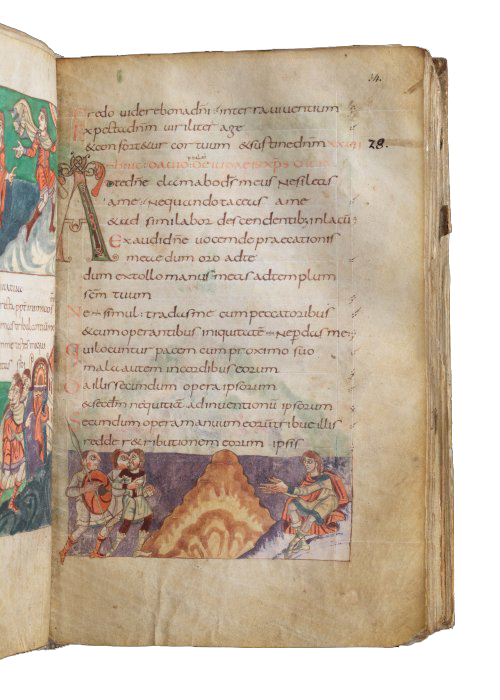 34.
Credo uidere bona dñi; in terra uiuentium
Expecta dñm uiriliter age
& confort&ur cor tuum & sustine dñm XXVII 28.
Ad te dñe clamabo ds meus Ne sileas
a me; Nequando taceas a me
& ad similabor descendentib; in lacũ;
Exaudi dñe uocem depraecationis
meae dum oro ad te
dum extollo manus meas ad templum
scm tuum
Ne simul; tradas me cum peccatoribus
& cum operantibus iniquitatẽ Ne perdas me;
Qui locuntur pacem cum proximo suo
mala autem in cordibus eorum
Da illis secundum opera ipsorum
& secdm nequitiã adinuentionũ ipsorum
Secundum opera manuum eorũ tribue illis
redde r&ributionem eorum ipsis